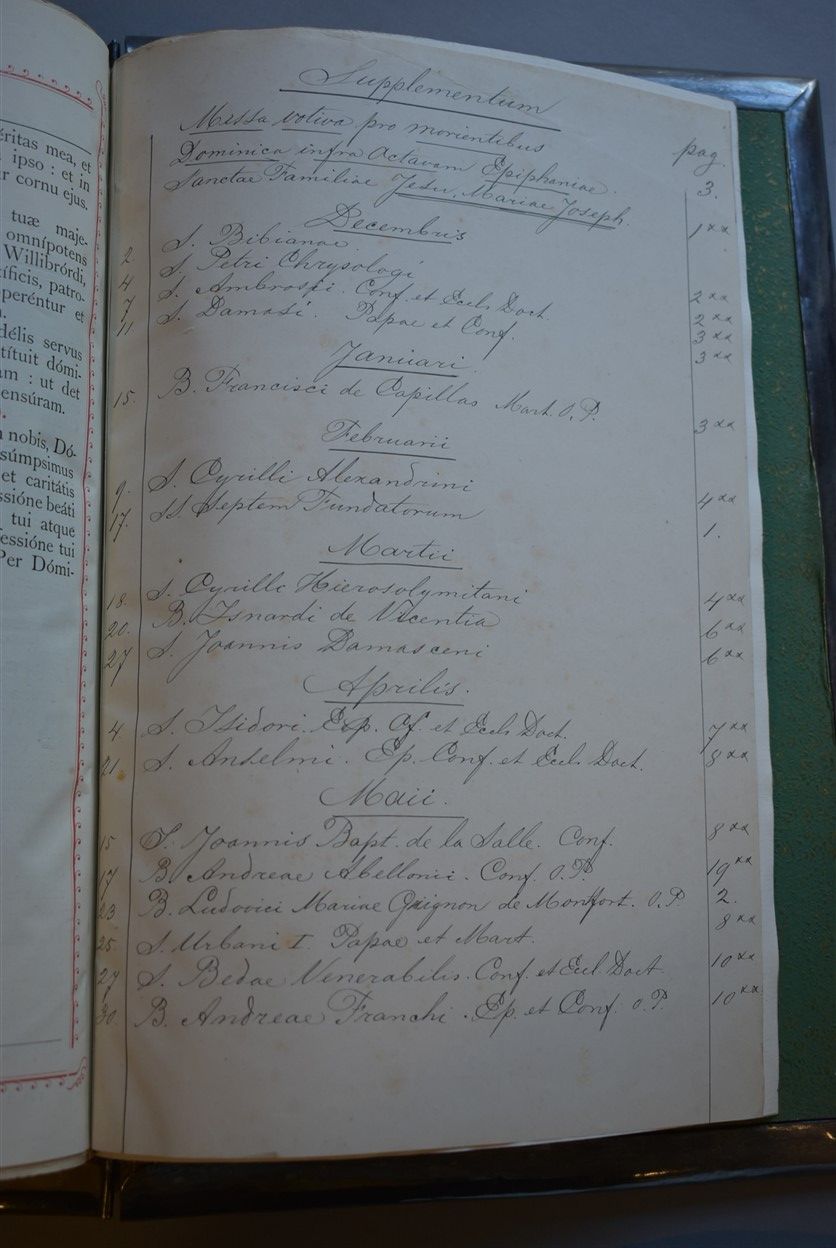 éritas mea, et
ipso : et in
r cornu ejus.
tuæ maje-
omnípotens
Willibrórdi,
tíficis, patro-
peréntur et
délis servus
títuit dómi-
am : ut det
ensúram.
nobis, Dó-
súmpsimus
et caritátis
ssióne beáti
tui atque
fessióne tui
Per Dómi-
Supplementum
Missa votiva pro morientibus pag.
Dominica infra Octavam Epiphaniae. 3.
Sanctae Familiae Jesu, Mariae Joseph 1**
Decembris
2. S. Bibianae 2**
4 S. Petri Chrysologi 2**
7 S. Ambrosii. Conf. et Eccls Doct. 3**
11 S. Damasi. Papae et Conf. 3**
Januari.
15. B. Francisci de Capillas Mart. O.P. 3**
Februarii
9. S. Cyrilli Alexandrini 4**
17. SS. Septem Fundatorum 1.
Martii
18. S. Cyrilli Hierosolymitani 4**
20. B. Isnardi de Vicentia 6**
27 S. Joannis Damasceni 6**
Aprilis.
4. S. Isidori. Ep. Cf. et Eccls Doct. 7**
21 S. Anselmi. Ep. Conf. et Eccls Doct. 8**
Maii.
15 S. Joannis Bapt. de la Salle. Conf. 8**
17 B. Andreae Abellonii. Conf. O.P. 19**
23 B. Ludovici Mariae Grignon de Monfort. O.P. 2.
25. S. Urbani I. Papae et Mart. 8**
27 S. Bedae Venerabilis. Conf. et Eccl Doct. 10**
30. B. Andreae Franchi. Ep. et Conf. O.P. 10**